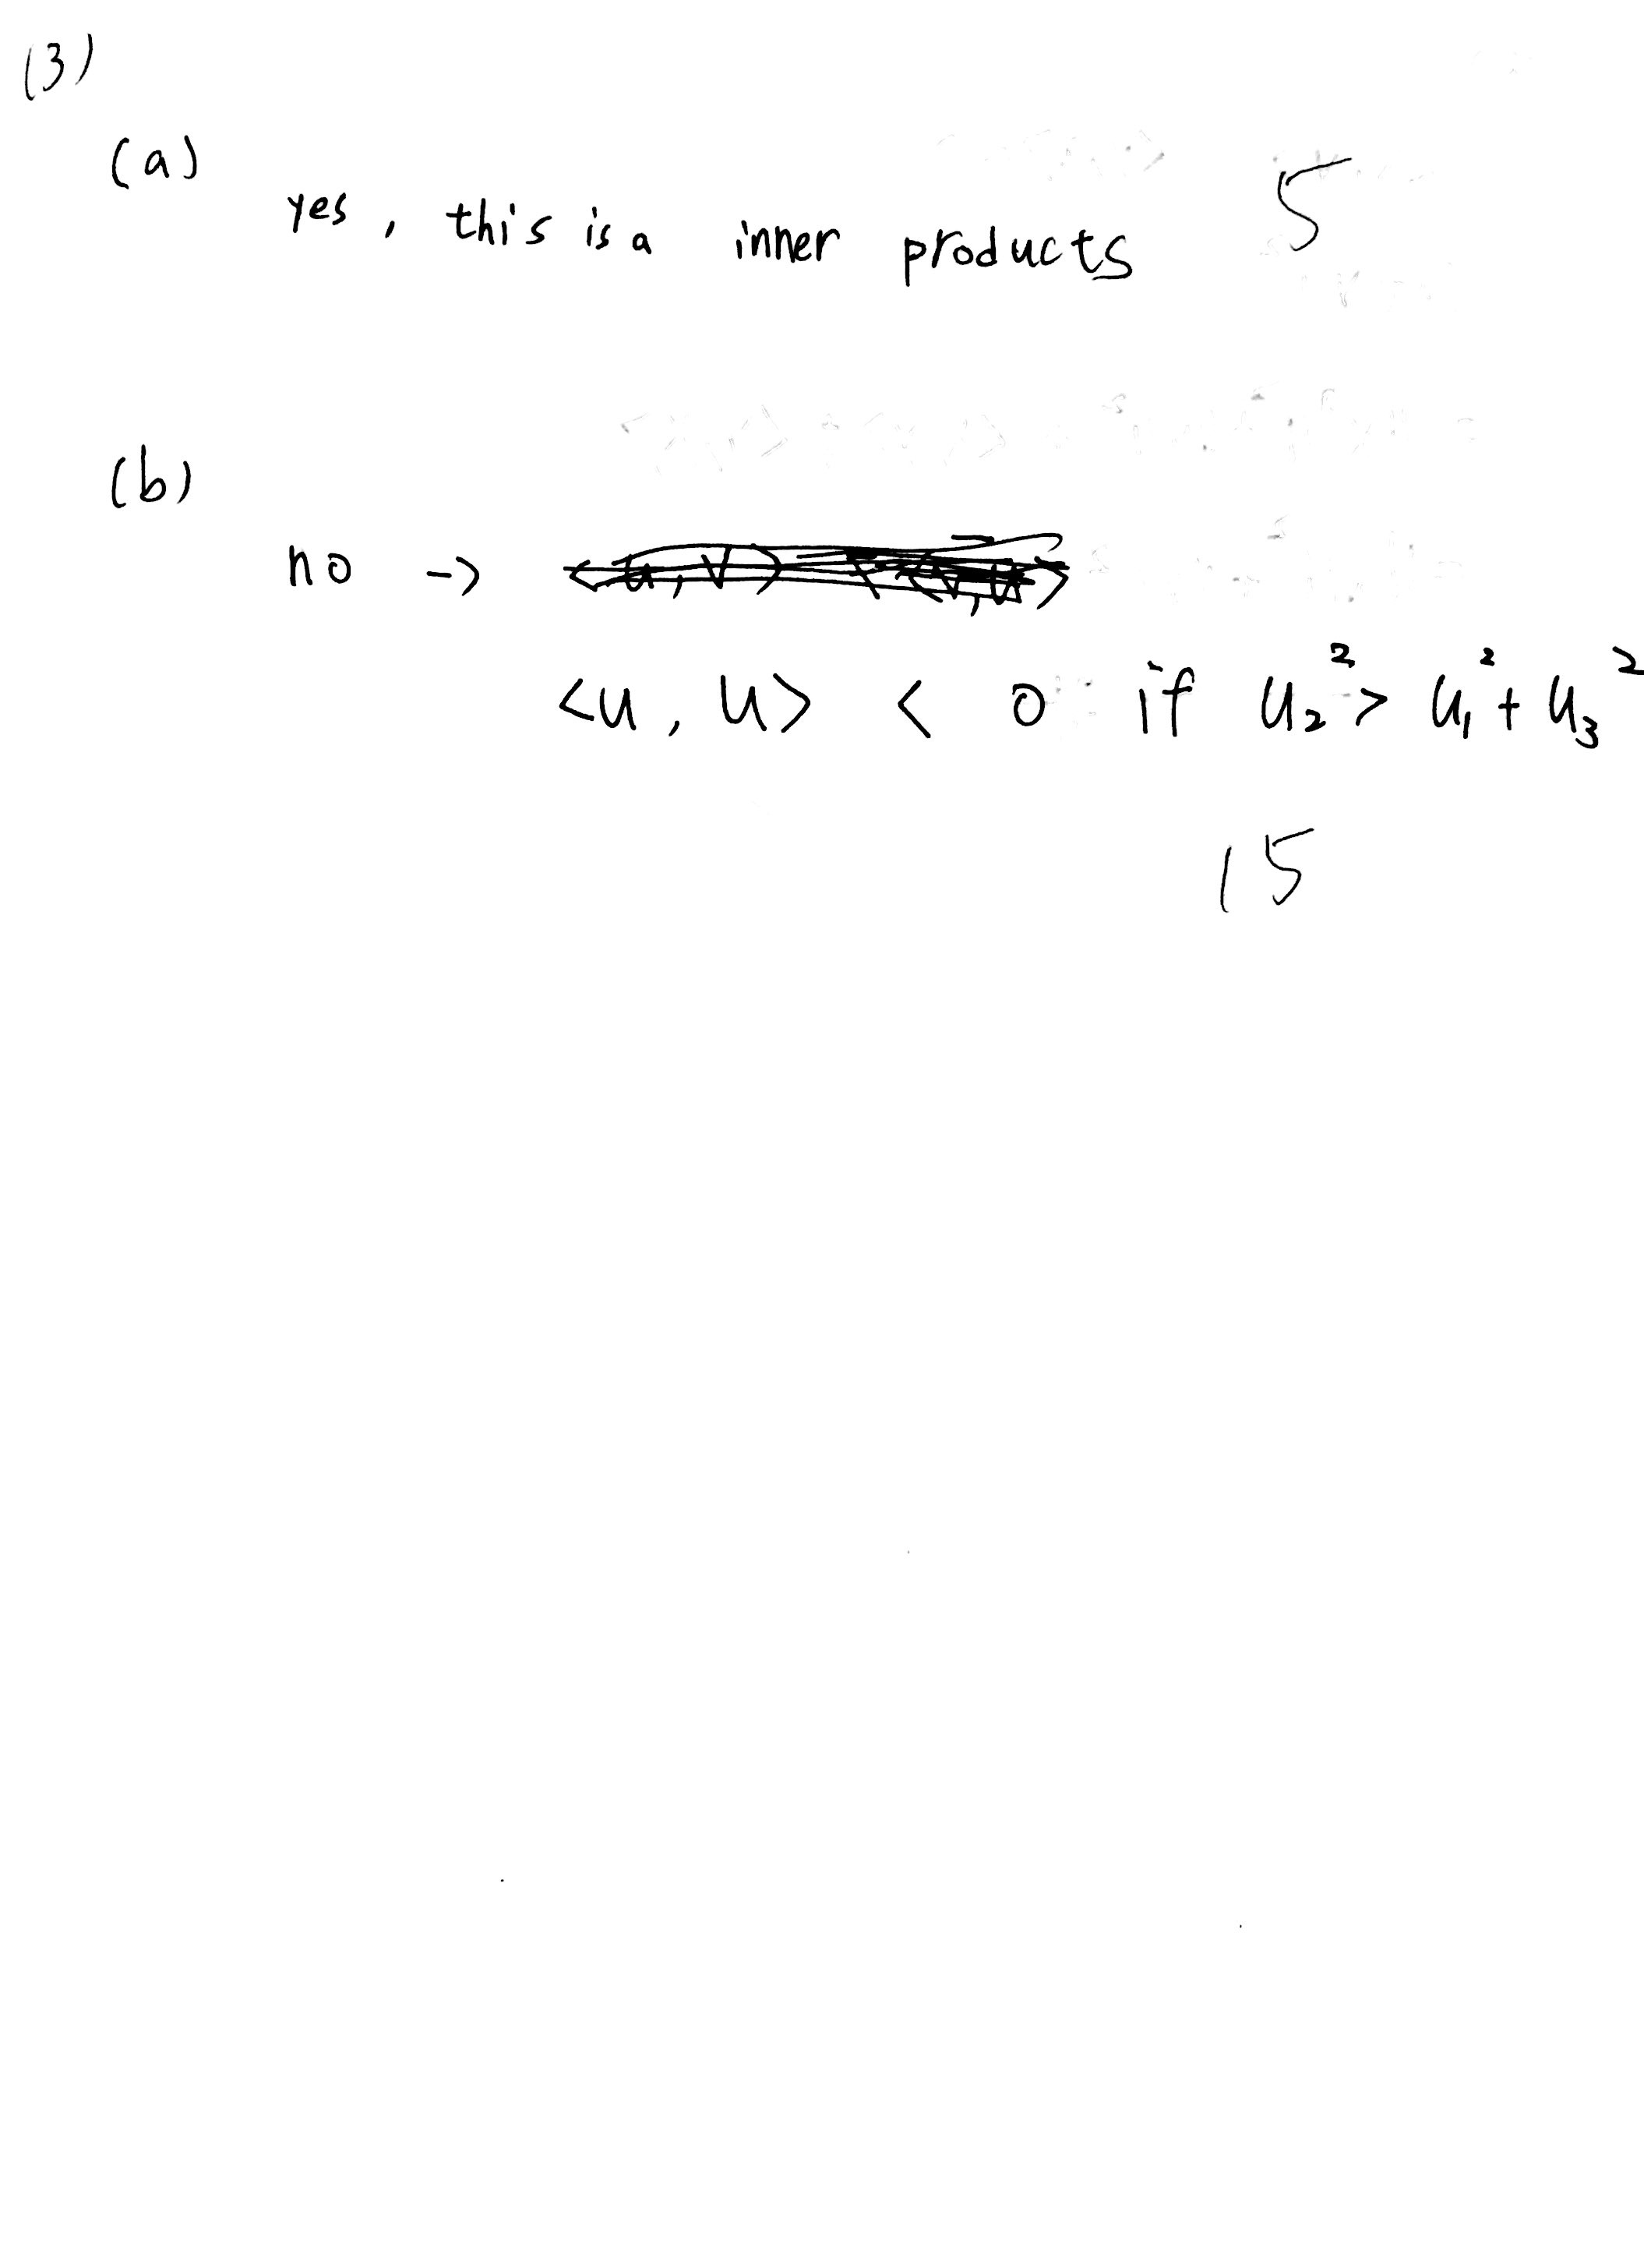 (3)
(a)
yes, this is a inner products 5
(b)
no ->
<u, u> < 0 if u₂² > u₁² + u₃²
15